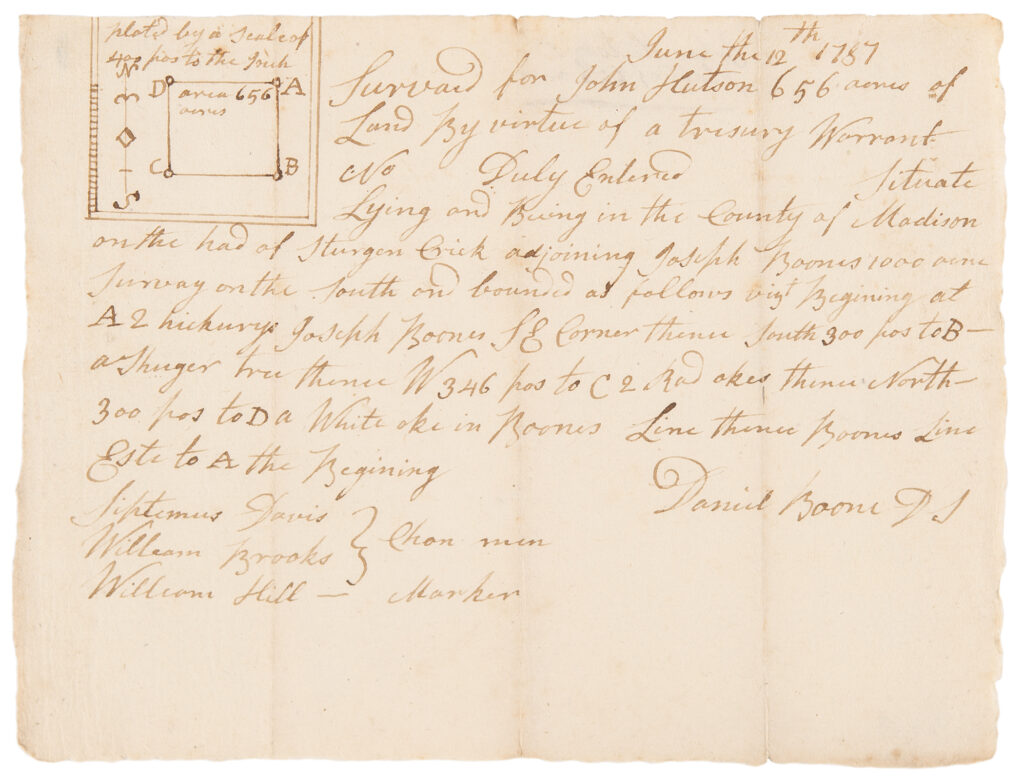 plated by a Scale of
400 pos to the Inch
N
D
A
area 656
acres
C
B
S
June the 12th 1787
Survaid for John Hutson 656 acres of
Land By virtue of a tresury Warrant
No Duly Entered Situate
Lying and Being in the County of Madison
on the had of Sturgen Crick adjoining Joseph Boones 1000 acre
Survay on the South and bounded as follows vizt Begining at
A 2 hickurys Joseph Boones SE Corner thence South 300 pos to B –
a Shuger tree thence W 346 pos to C 2 Rad okes thence North –
300 pos to D a White oke in Boones Line thence Boones Line
Este to A the Begining
Daniel Boone D S
Siptemus Davis
William Brooks } Chan men
William Hill — Marker